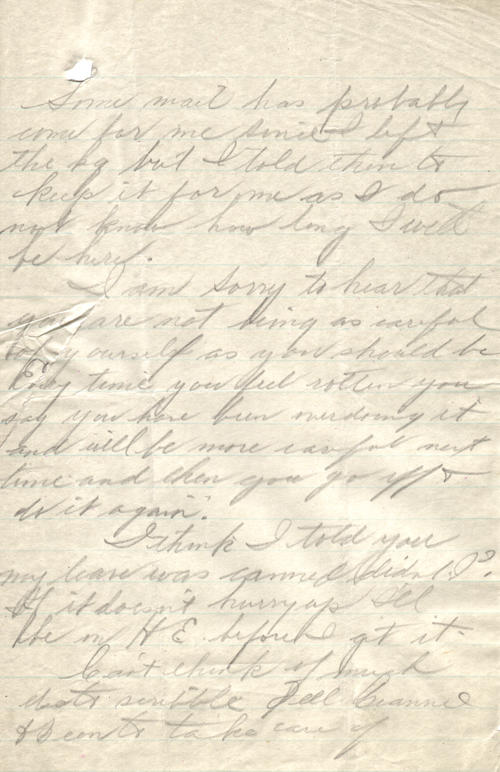 Some mail has probably
come for me since I left
the bq but I told them to
keep it for me as I do
not know how long I will
be here.
I am sorry to hear that
you are not being as careful
of yourself as you should be
Every time you feel rotten you
say you have been overdoing it
and will be more careful next
time and then you go off &
do it again".
I think I told you
my leave was cancelled didn't I?
If it doesn't hurry up I'll
be in H E before I get it.
Can't think of much
else to scribble Tell
to take care of